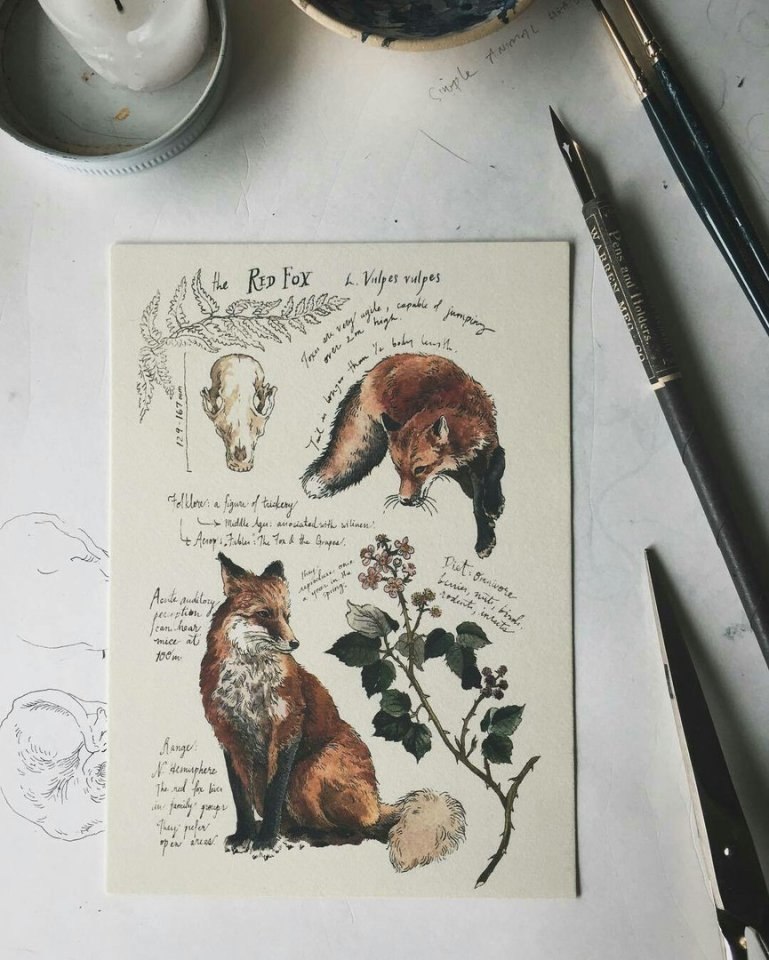 simple ANIMAL
Pens and Holders
WARREN MFG. CO
the RED FOX L. Vulpes vulpes
Foxes are very agile, capable of jumping
over 2m high.
Tail is longer than ½ body length.
129-167mm
Folklore: a figure of trickery
Middle Ages: associated with wiliness.
Aesop's "Fables": The Fox & the Grapes.
they
reproduce once
a year in the
spring.
Diet: Omnivore
berries, nuts, birds,
rodents, insects
Acute auditory
perception
can hear
mice at
100m
Range:
N. Hemisphere
The red fox lives
in family groups
They prefer
open areas.